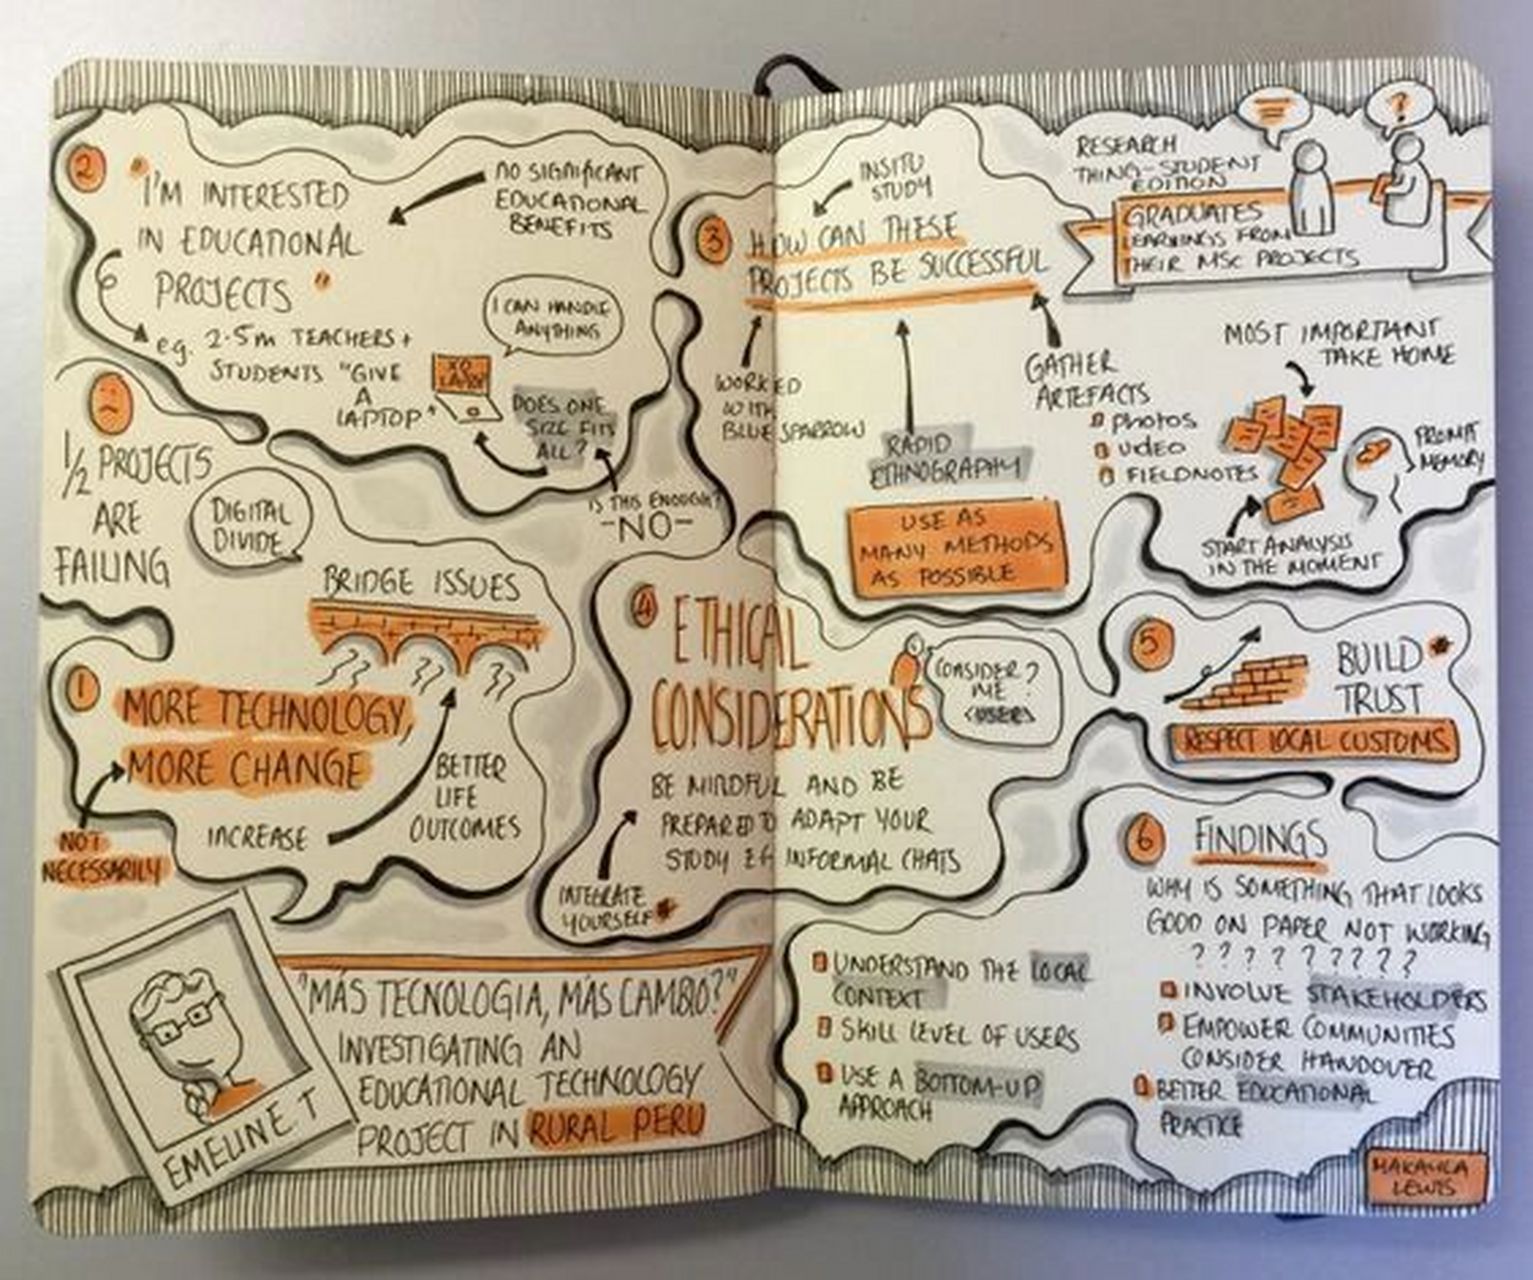 RESEARCH
THING-STUDENT
EDITION
GRADUATES
LEARNINGS FROM
THEIR MSC PROJECTS
?
"MÁS TECNOLOGIA, MÁS CAMBIO?"
INVESTIGATING AN
EDUCATIONAL TECHNOLOGY
PROJECT IN RURAL PERU
EMELINE T
1
MORE TECHNOLOGY,
MORE CHANGE
NOT
NECESSARILY
INCREASE
BETTER
LIFE
OUTCOMES
BRIDGE ISSUES
DIGITAL
DIVIDE
1/2 PROJECTS
ARE
FAILING
2
"I'M INTERESTED
IN EDUCATIONAL
PROJECTS"
NO SIGNIFICANT
EDUCATIONAL
BENEFITS
eg. 2.5m TEACHERS +
STUDENTS "GIVE
A
LAPTOP"
XO
LAPTOP
I CAN HANDLE
ANYTHING
DOES ONE
SIZE FITS
ALL?
IS THIS ENOUGH?
-NO-
3
HOW CAN THESE
PROJECTS BE SUCCESSFUL
INSITU
STUDY
WORKED
WITH
BLUE SPARROW
RAPID
ETHNOGRAPHY
USE AS
MANY METHODS
AS POSSIBLE
GATHER
ARTEFACTS
PHOTOS
VIDEO
FIELDNOTES
MOST IMPORTANT
TAKE HOME
PROMPT
MEMORY
START ANALYSIS
IN THE MOMENT
4
ETHICAL
CONSIDERATIONS
CONSIDER?
ME
<USERS
BE MINDFUL AND BE
PREPARED TO ADAPT YOUR
STUDY EG INFORMAL CHATS
INTEGRATE
YOURSELF
5
BUILD
TRUST
RESPECT LOCAL CUSTOMS
6
FINDINGS
WHY IS SOMETHING THAT LOOKS
GOOD ON PAPER NOT WORKING
? ? ? ? ? ? ? ? ?
UNDERSTAND THE LOCAL
CONTEXT
SKILL LEVEL OF USERS
USE A BOTTOM-UP
APPROACH
INVOLVE STAKEHOLDERS
EMPOWER COMMUNITIES
CONSIDER HANDOVER
BETTER EDUCATIONAL
PRACTICE
MAKAYLA
LEWIS